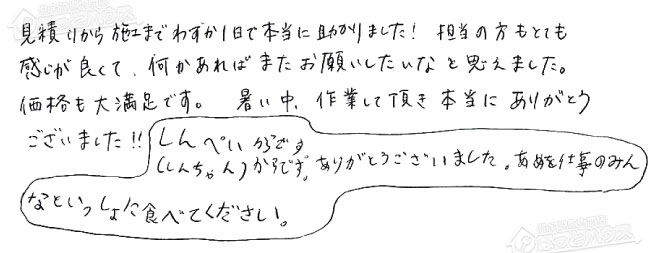 見積りから施工までわずか1日で本当に助かりました！担当の方もとても
感じが良くて、何かあればまたお願いしたいなと思えました。
価格も大満足です。暑い中、作業して頂き本当にありがとう
ございました!!
しんぺいからです
(しんちゃん)からです。ありがとうございました。あめを仕事のみん
なといっしょに食べてください。